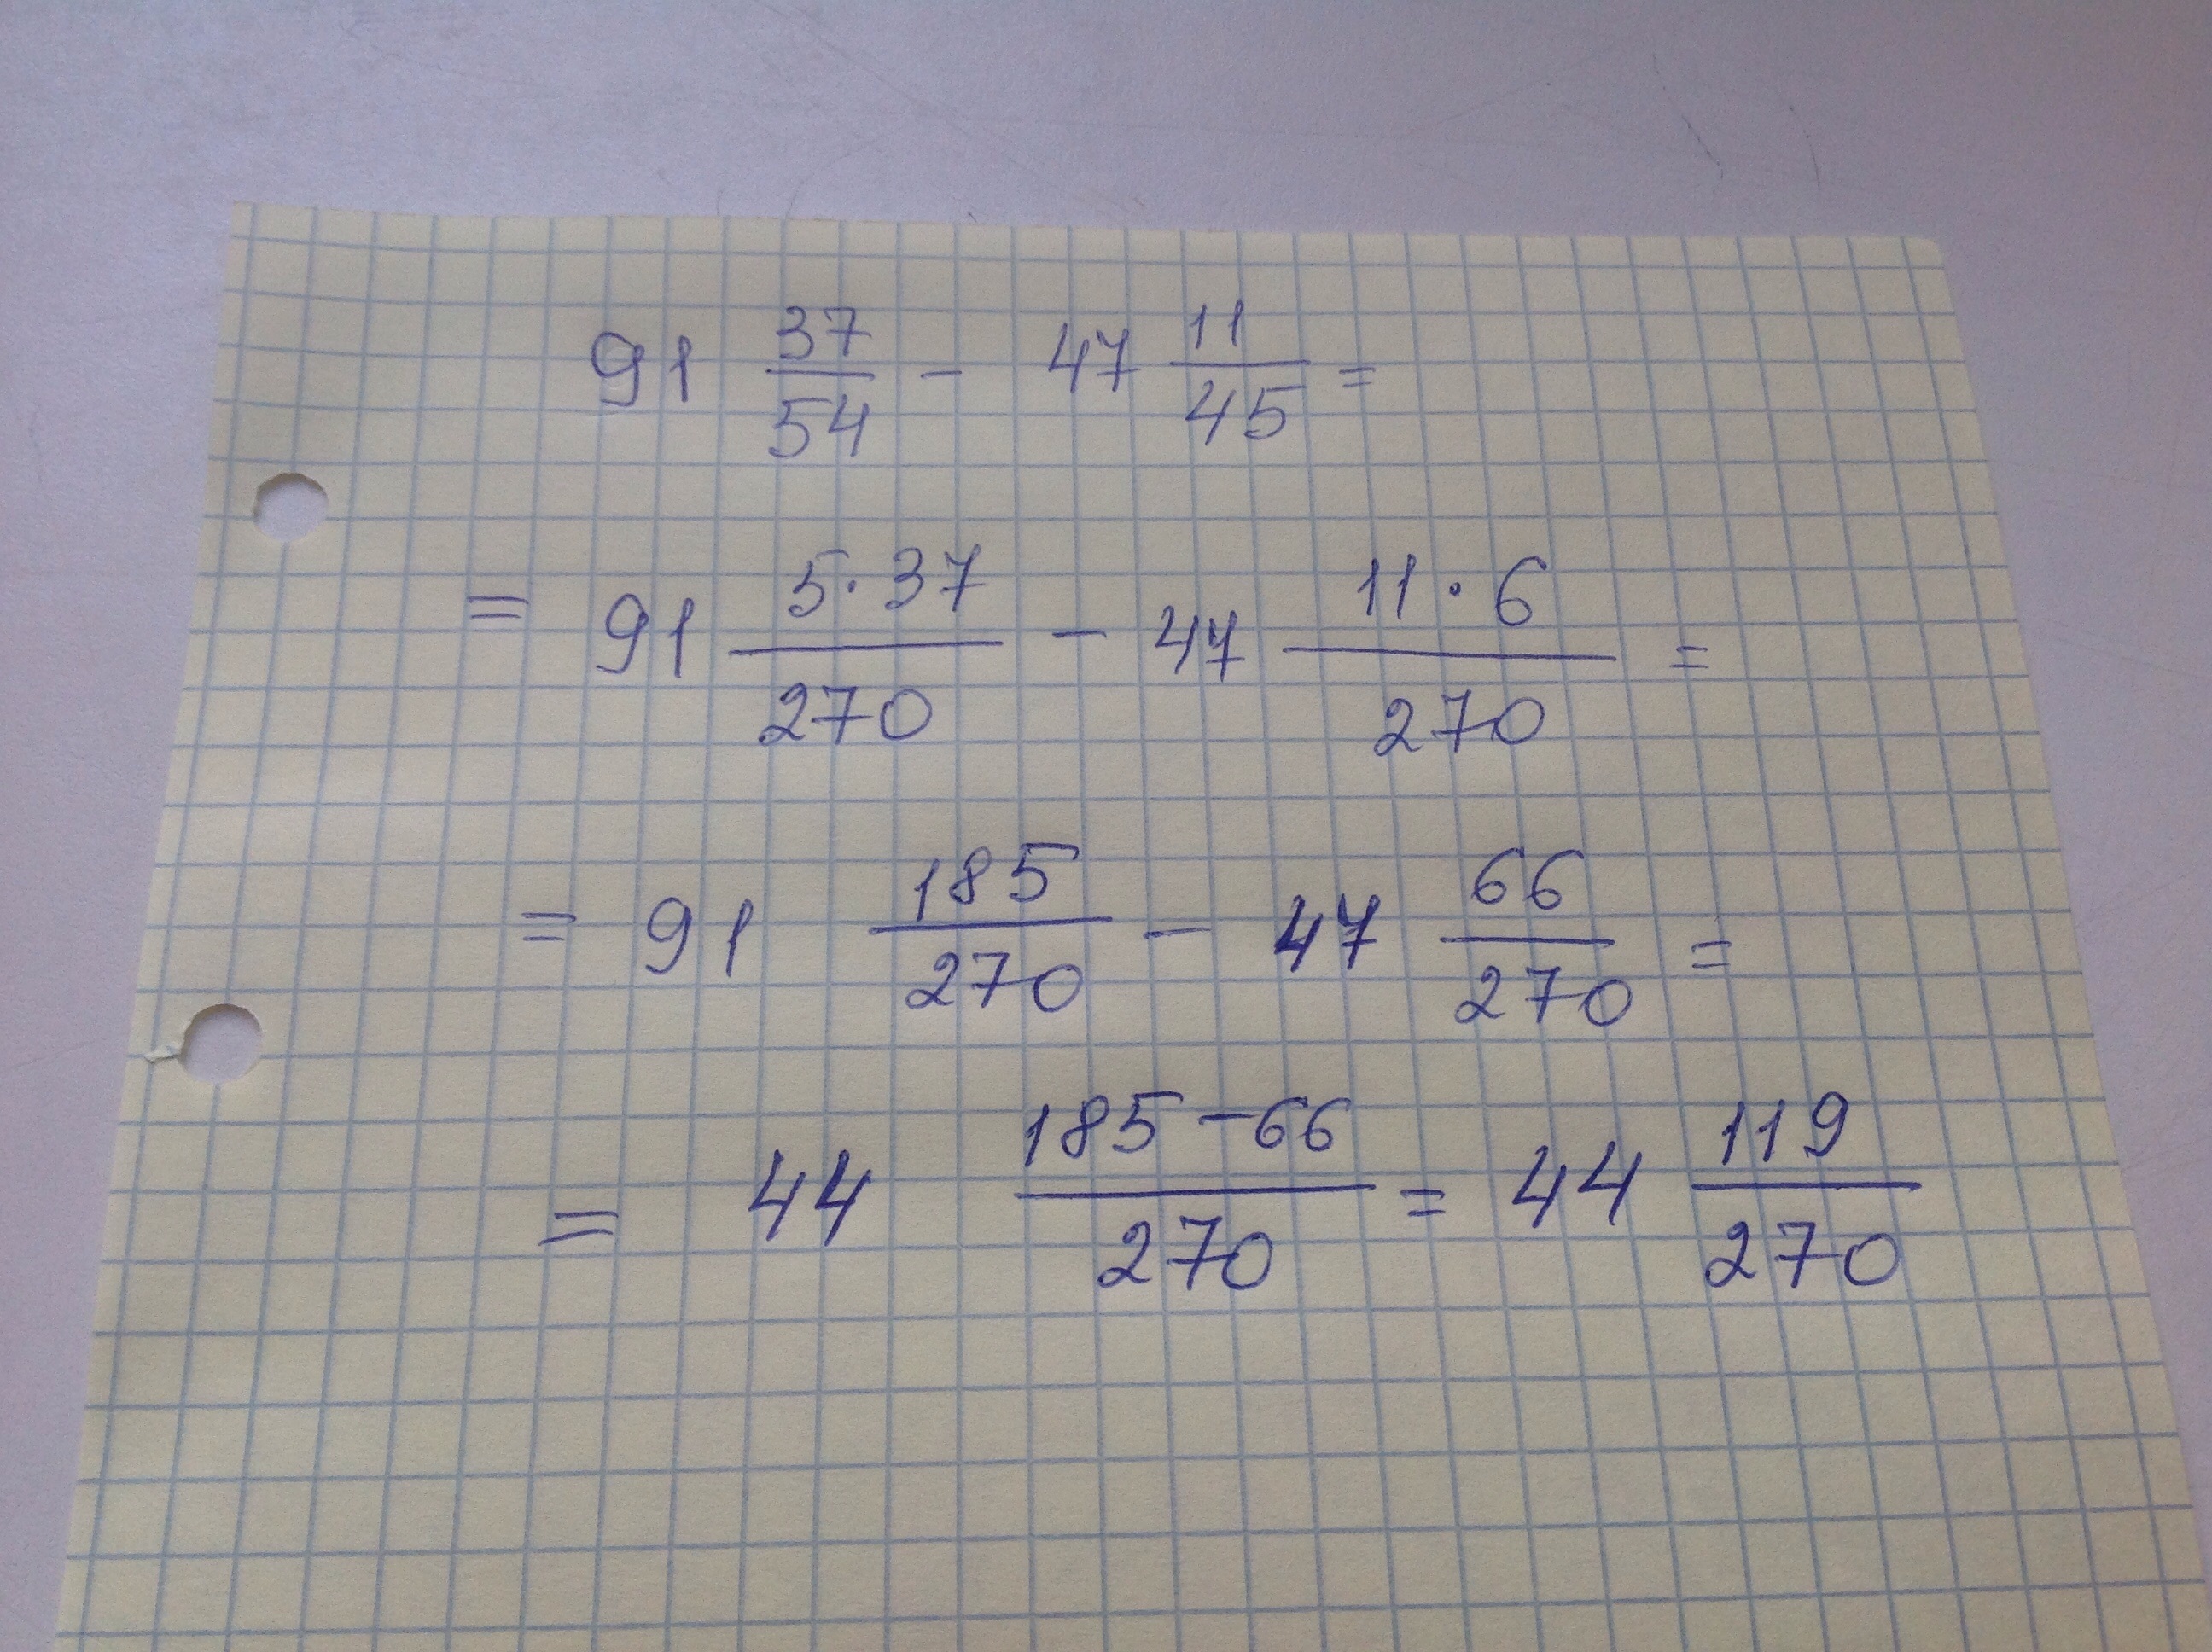 91 37/54 - 47 11/45 =
= 91 5·37/270 - 47 11·6/270 =
= 91 185/270 - 47 66/270 =
= 44 185-66/270 = 44 119/270